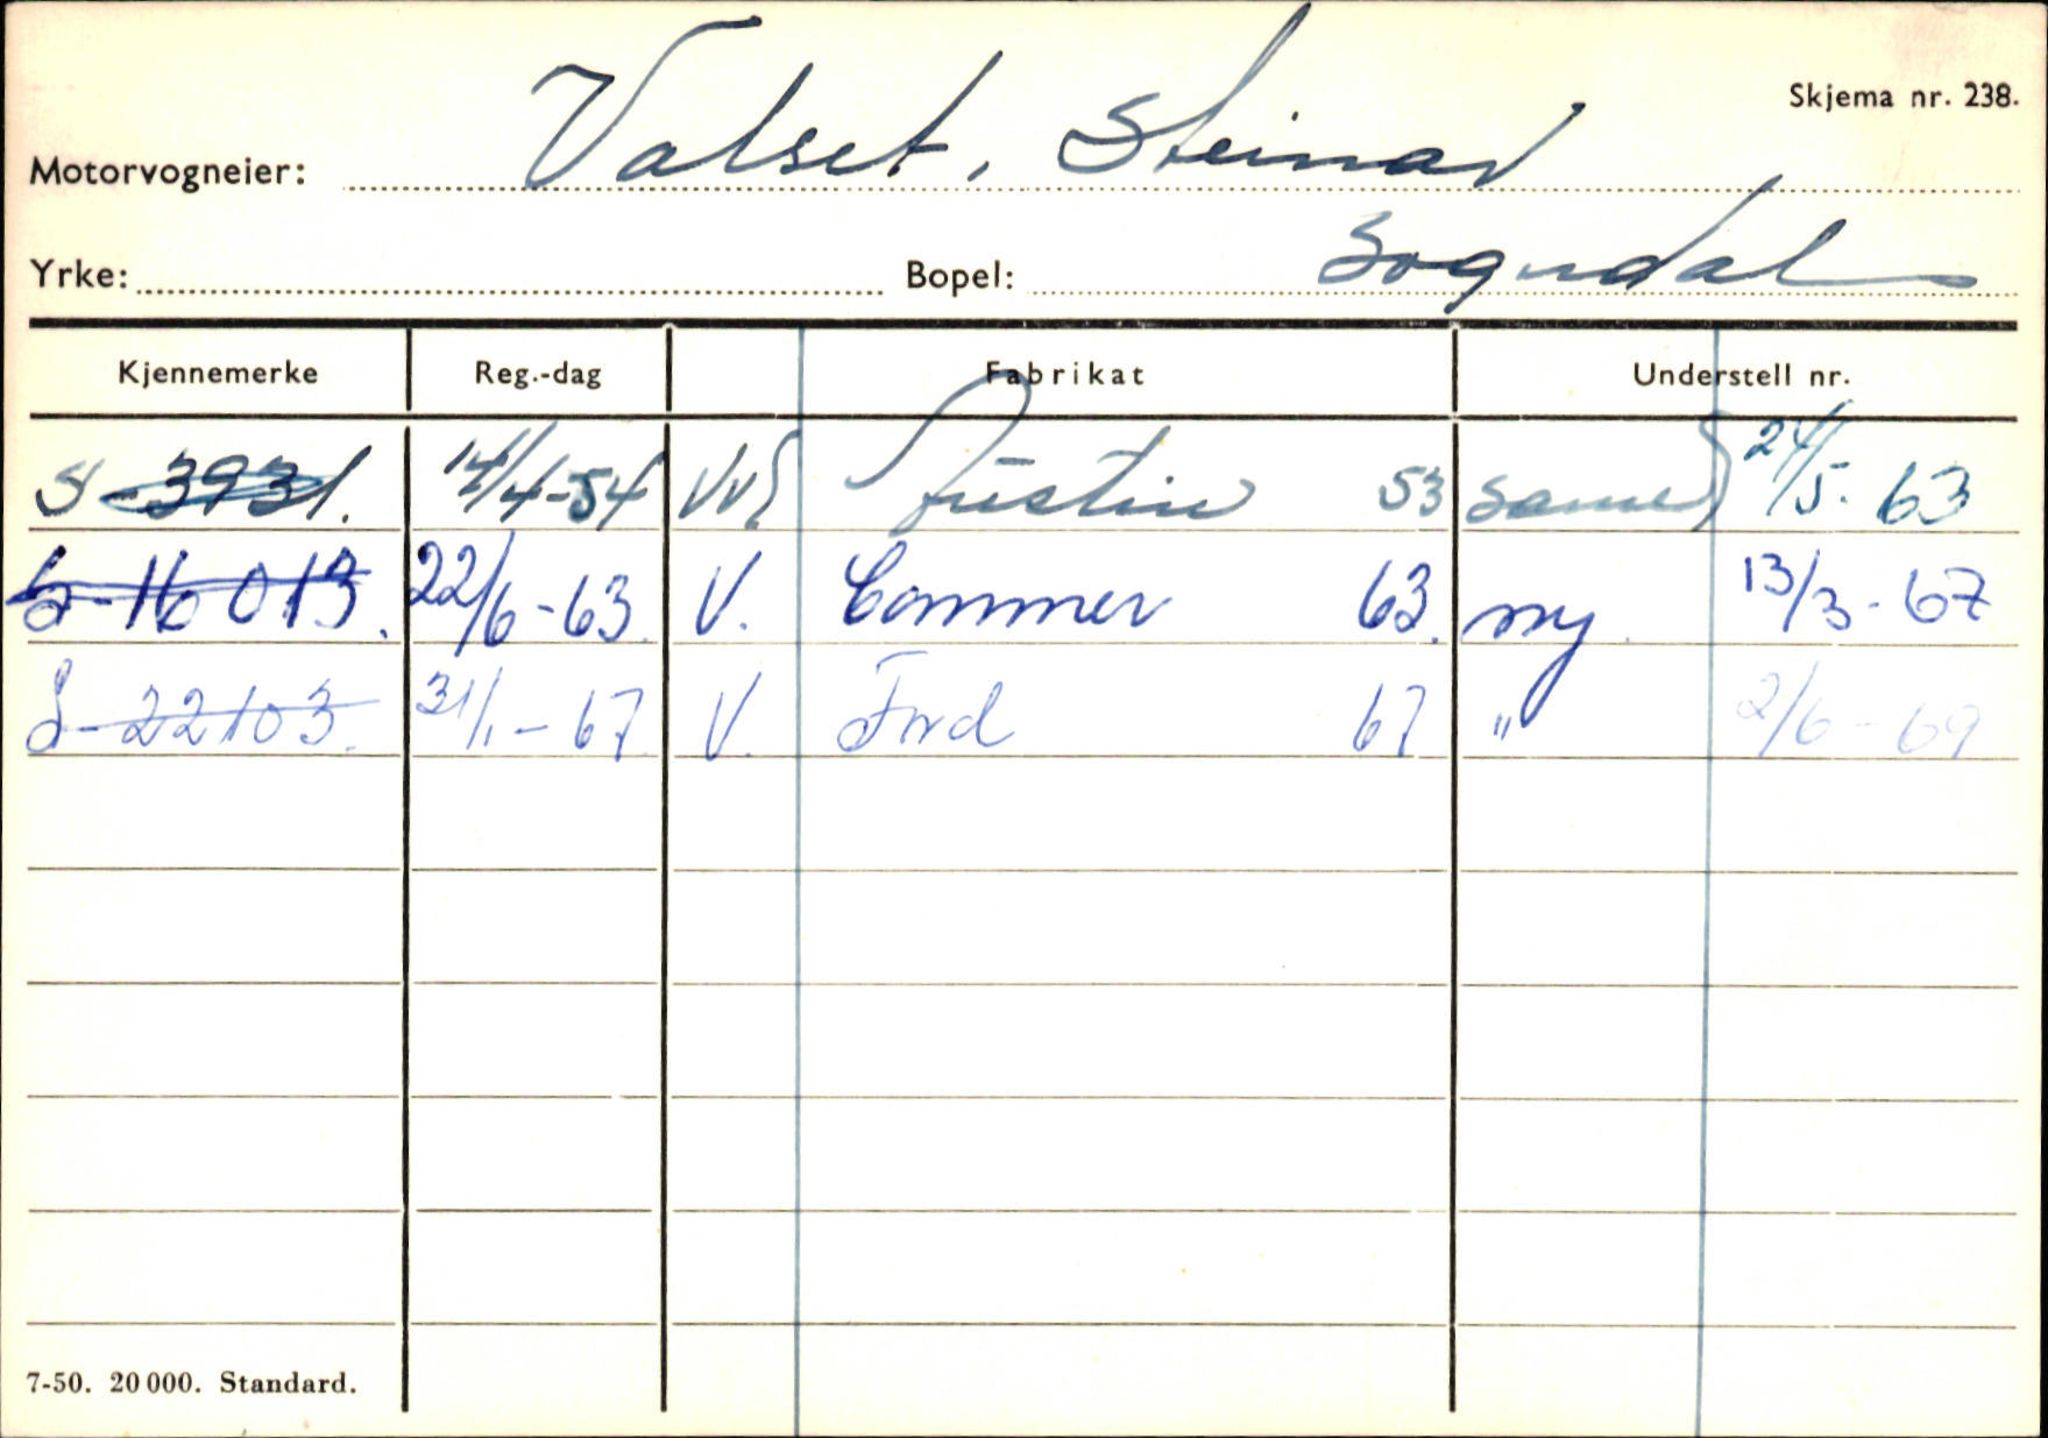 Skjema nr. 238.
Motorvogneier: Valset, Steinar
Yrke: Bopel: Sogndal
Kjennemerke Reg.-dag Fabrikat Understell nr.
S-3931. 14/4-54 Austin 53 same 24/5-63
S-16013. 22/6-63. V. Commer 63. ny. 13/3-67
S-22103. 31/1-67. V. Ford 67 " 2/6-69
7-50. 20 000. Standard.